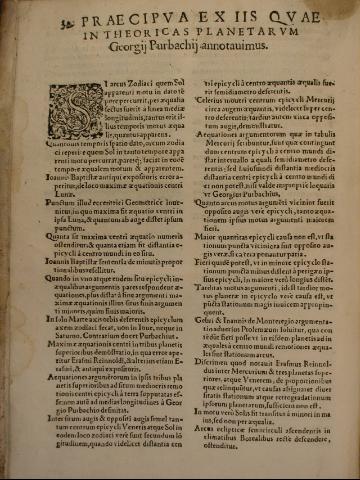 PRAECIPVA EX IIS QVAE
IN THEORICAS PLANETARVM
Georgij Purbachij annotauimus.
SI arcus Zodiaci quem Sol
apparenti motu in dato tẽ
pore percurrit, per æqualia
sectus fuerit à linea mediæ
longitudinis, tantus erit il-
lius temporis motus æqua
lis, quantus apparens.
Quouis temporis spatio dato, arcum zodia
ci reperire quem Sol in tanto tempore appa
renti motu percurrat, pares que faciat in eodẽ
tempore æqualem motum & apparentem.
Ioannis Baptistæ antiqui expositoris error a-
peritur, de loco maximæ æquationis centri
Lunæ.
Punctum inuenitur eccentrici Geometricè
in quo maxima fit æquatio centri in
ipsa Luna, & quantum ab auge distet ipsum
punctum.
Quanta sit maxima centri æquatio numeris
ostenditur, & quanta etiam sit distantia e-
picycli à centro mundi in eo situ.
Ioannis Baptistæ sententia de minutis propor
tionalibus refellitur.
Quando in vno atque eodem situ epicycli in-
æqualibus argumentis pares respondent æ-
quationes, plus distat à sine argumenti ma-
ximæ æquationis illius situs sinus argumen
ti minoris, quàm sinus maioris.
In solo Marte axis orbis deferentis epicyclum
axem zodiaci secat, non in Ioue, neque in
Saturno. Contrarium docet Purbachius.
Maximæ æquationis centri in tribus planetis
superioribus demonstratio, in qua error ape-
ritur Erasmi Reinoldi, & alterius etiam E-
rasmi, & antiqui expositoris.
Aequationes argumentorum in ipsis tribus pla
netis superioribus ad sitom mediocris remo-
tionis centri epicycli à terra supputatas es-
se non autem ad medias longitudines à Geor
gio Purbachio definitas.
Inter situm augis & oppositi augis simul tan-
tum centrum epicycli Veneris atque Sol in
eodem loco zodiaci vere sunt secundum lō
gitudinem, quando videlicet distantia cen
tri epicycli à centro æquantis æqualis fue-
rit semidiametro deferentis.
Celerius moueri centrum epicycli Mercurij
circa augem æquantis, videlicet super cen-
tro deferentis: tardius autem circa opposi-
tum augis, demonstratur.
Aequationes argumentorum quæ in tabulis
Mercurij scribuntur, sunt quæ contingunt
dum centrum epicycli à centro mundi di-
stat interuallo æquali semidiametro defe-
rentis: sed huiusmodi distantia mediocris
distantia centri epicycli à centro mundi di
ci non potest, nisi valde impropriè loquatur
vt Georgius Purbachius.
Quanto arcus motus argumenti vicinior fuerit
opposito augis veræ epicycli, tanto æqua-
tionem ipsius motus argumenti maiorem
fieri.
Maior quantitas epicycli causa non est, vt sta
tionum puncta viciniora sint opposito au-
gis veræ, sicut res penautur patria.
Fieri quidem potest, vt in minore epicyclo sta
tionum puncta minus distent à perigæo ip-
sius epicycli, in maiore verò longius distẽt.
Tarditas motus argumenti, id est tardior mo-
tus planetæ in epicyclo vero causa est, vt
puncta stationum magis inuicem appropin-
quent.
Gebri & Ioannis de Monteregio argumenta-
tio aduersus Ptolemæum soluitur, qua con-
tendit fieri posse vt in eisdem planetis ad in
æquales à centro mundi remotiones æqua-
les sint stationum arcus.
Discrimen quod notauit Erasmus Reinol-
dus inter Mercurium & tres planetas supe-
riores, atque Venerem, de proportionibus
quas relinquimus, vt causas assignaret diuer
sitatis stationum atque retrogradationum
ipsorum planetarum, sufficiens non est.
In motu verò Solis fit transitus à minori in ma
ius, sed non per æqualia.
Arcus eclipticæ semicirculi ascendentis in
climatibus Borealibus rectè descendere,
ostenditur.